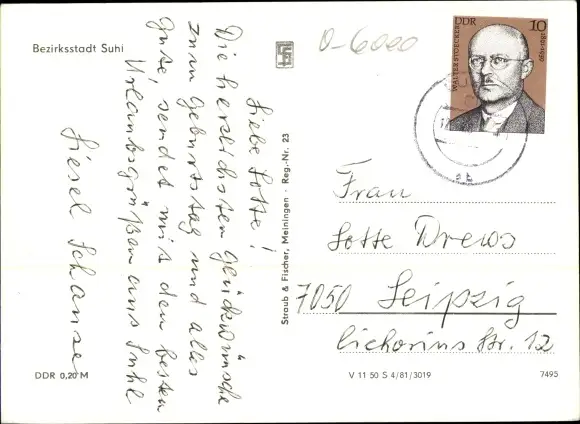 Bezirksstadt Suhl
D-6000
DDR
10
WALTER STOECKER
1891-1939
Liebe Lotte!
Die herzlichsten Glückwünsche
zum Geburtstag und alles
Gute, sendet mit den besten
Urlaubsgrüßen aus Suhl
Liesel Schanse
Straub & Fischer, Meiningen · Reg.-Nr. 23
Frau
Lotte Drews
7050 Leipzig
Cichorius Str. 12
DDR 0,20 M
V 11 50 S 4/81/3019
7495